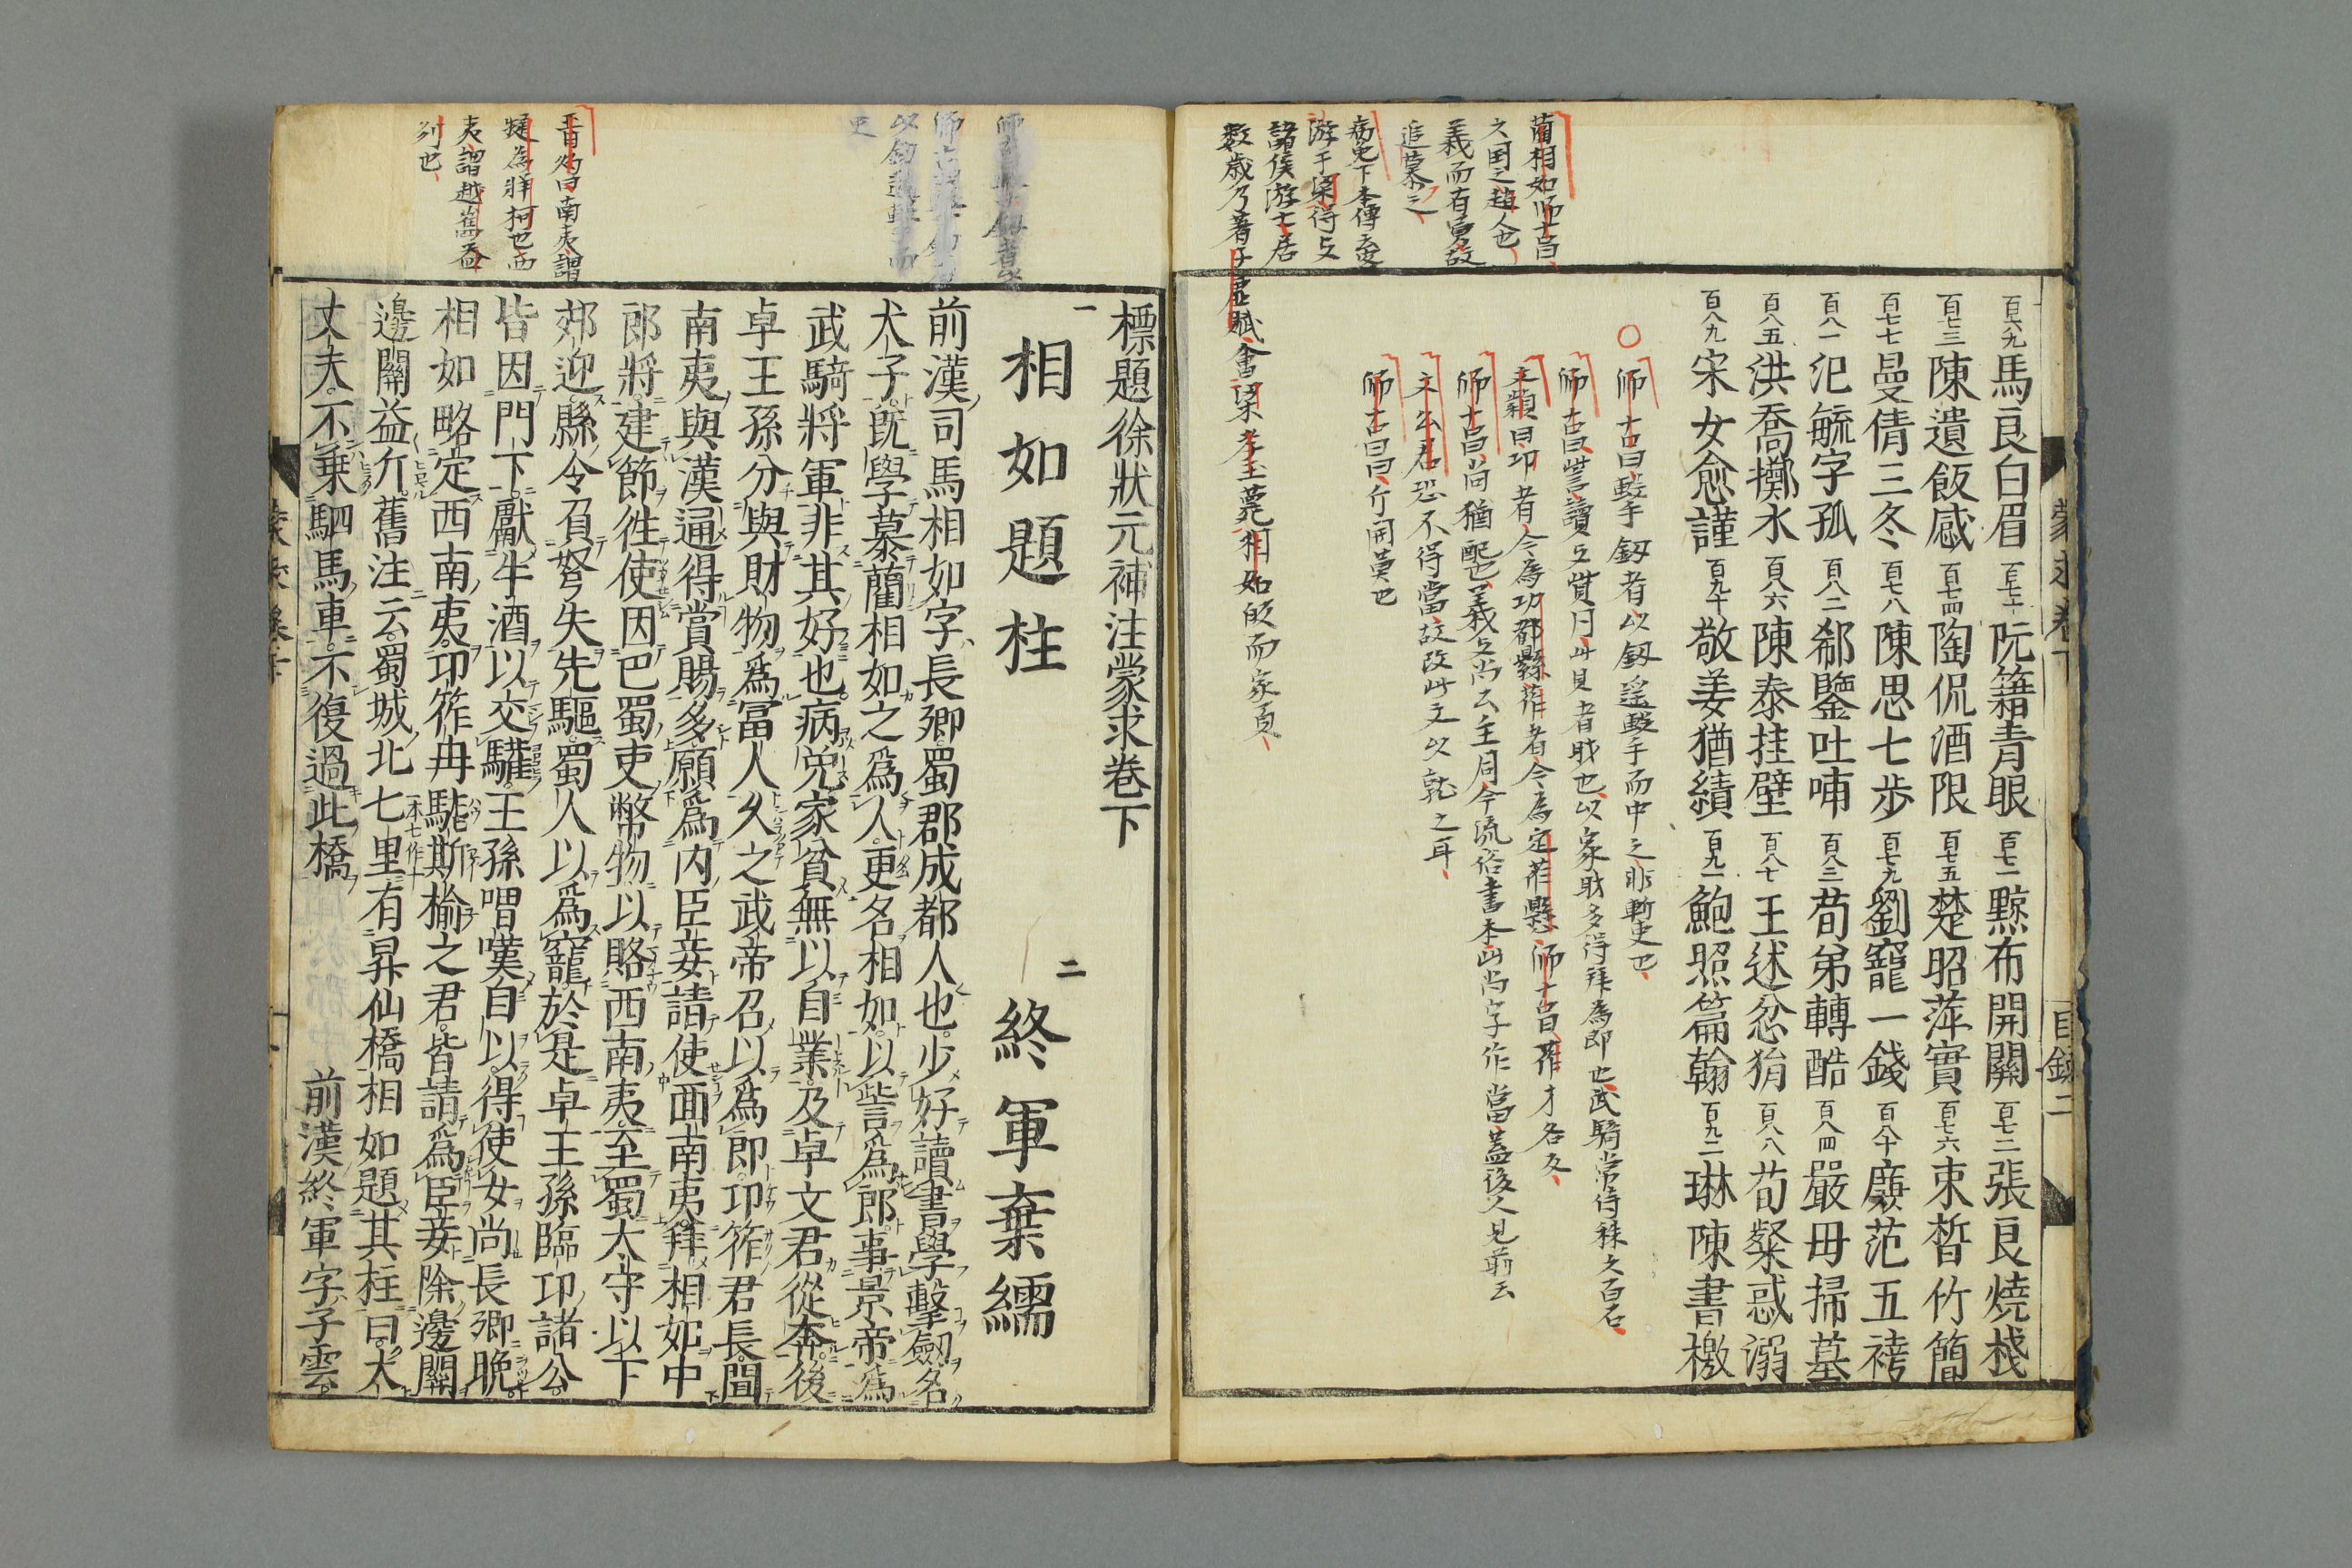 百六九馬良白眉百七十阮籍青眼百七一黥布開關百七二張良燒棧
百七三陳遺飯感百七四陶侃酒限百七五楚昭萍實百七六束晳竹簡
百七七曼倩三冬百七八陳思七步百七九劉寵一錢百八十廉范五袴
百八一氾毓字孤百八二郗鑒吐哺百八三荀弟轉酷百八四嚴毋掃墓
百八五洪喬擲水百八六陳泰挂壁百八七王述忿狷百八八荀粲惑溺
百八九宋女愈謹百九十敬姜猶績百九一鮑照篇翰百九二琳陳書檄
蒙求卷下
目錄二
藺相如師古曰
六國之趙人也
義而有勇故
追慕之
病免下本傳云
游于梁得与
諸侯游士居
數歲乃著子虛賦會梁孝王薨相如皈而家貧
師古曰擊劍者以劍遥擊而中之非斬刺也
師古曰訾讀与貲同貲財也以家財多得拜為郎也武騎常侍秩六百石
文穎曰卭者今為卭都縣莋者今為定莋縣師古曰莋才各反
師古曰尚猶配也義与尚公主同今流俗書本此尚字作當蓋後人見前云
文公君恐不得當故改此文以就之耳
師古曰斥開廣也
標題徐狀元補注蒙求卷下
一 相如題柱 二 終軍棄繻
前漢司馬相如字長卿蜀郡成都人也少好讀書學擊劍名
犬子旣學慕藺相如之爲人更名相如以訾爲郎事景帝爲
武騎將軍非其好也病免家貧無以自業及卓文君從奔後
卓王孫分與財物爲富人久之武帝召以爲郎卭筰君長聞
南夷與漢通得賞賜多願爲內臣妾請使面南夷拜相如中
郎將建節徃使因巴蜀吏幣物以賂西南夷至蜀大守以下
郊迎縣令負弩失先驅蜀人以爲寵於是卓王孫臨卭諸公
皆因門下獻牛酒以交驩王孫喟嘆自以得使女尚長卿晚
相如略定西南夷卭筰冉駹斯榆之君皆請爲臣妾除邊關
邊關益斥舊注云蜀城北七里有昇仙橋相如題其柱曰大
丈夫不乗駟馬車不復過此橋 前漢終軍字子雲
晋灼曰南夷謂
犍為牂柯也西
夷謂越嶲益
列也